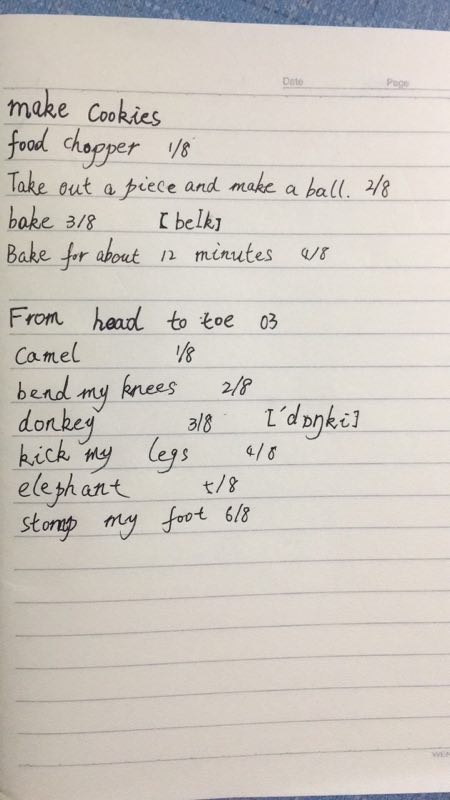 Date Page
make Cookies
food chopper 1/8
Take out a piece and make a ball. 2/8
bake 3/8 [beIk]
Bake for about 12 minutes 4/8
From head to toe 03
Camel 1/8
bend my knees 2/8
donkey 3/8 ['dɒŋki]
kick my legs 4/8
elephant 5/8
stomp my foot 6/8